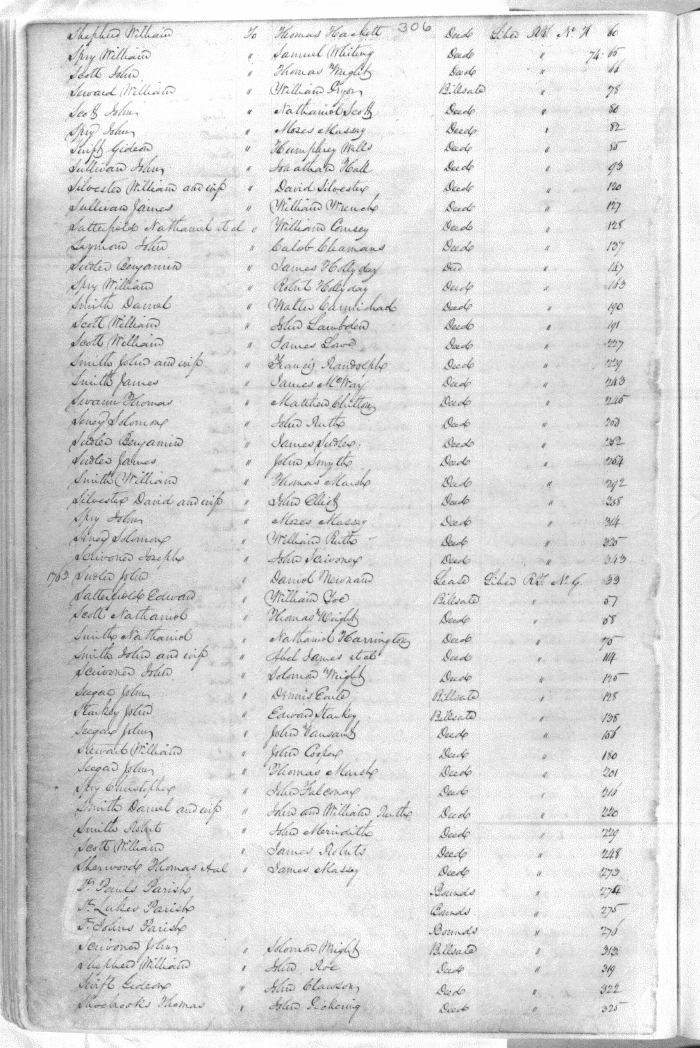 306
Shepherd William To Thomas Hackett Deed Liber RT No H 60
Spry William " Samuel Whiting Deed " 74. 65
Scott John " Thomas Wright Deed " 66
Seward William " William Pryor Billsale " 78
Scott John " Nathaniel Scott Deed " 80
Spry John " Moses Massey Deed " 82
Swift Gideon " Humphrey Wells Deed " 85
Sullivan John " Jonathan Hall Deed " 93
Silvester William and wife " David Silvester Deed " 120
Sullivan James " William Wrench Deed " 127
Satterfield Nathaniel et al " William Comsey Deed " 128
Seymour John " Caleb Clemans Deed " 137
Sudler Benjamin " James Hollyday Deed " 147
Spry William " Robert Hollyday Deed " 163
Smith Daniel " Walter Carmichael Deed " 190
Scott William " John Lambden Deed " 191
Scott William " James Lowe Deed " 227
Smith John and wife " Francis Randolph Deed " 229
Smith James " James McWay Deed " 243
Swann Thomas " Matthew Chilton Deed " 245
Seney Solomon " John Ruth Deed "
Sudler Benjamin " James Sudler Deed " 262
Sudler James " John Smyth Deed " 264
Smith William " Thomas Marsh Deed " 292
Silvester David and wife " John Clist Deed " 308
Spry John " Moses Massey Deed " 314
Seney Solomon " William Ruth Deed " 335
Scrivener Joseph " John Scrivener Deed " 343
1763 Sudler John " Daniel Newnam Lease Liber RT No G. 33
Satterfield Edward " William Coe Billsale " 57
Scott Nathaniel " Thomas Wright Deed " 58
Smith Nathaniel " Nathaniel Harrington Deed " 75
Smith John and wife " Abel James et al Deed " 114
Scrivener John " Solomon Wright Deed " 125
Seegar John " Dennis Earle Billsale " 128
Starkey John " Edward Starkey Billsale " 138
Seegar John " John Vansant Deed " 156
Stewart William " John Cooper Deed " 180
Seegar John " Thomas Marsh Deed " 201
Spry Christopher " John Falconar Deed " 216
Smith Daniel and wife " John and William Ruth Deed " 220
Smith Robert " John Meridith Deed " 229
Scott William " James Roberts Deed " 248
Sherwood Thomas et al " James Massey Deed " 273
St Pauls Parish Bounds " 274
St Lukes Parish Bounds " 275
St Johns Parish Bounds " 276
Scrivener John " Solomon Wright Billsale " 313
Shepherd William " John Roe Deed " 319
Swift Gideon " John Clawson Deed " 322
Shoebrooks Thomas " John Pickering Deed " 325